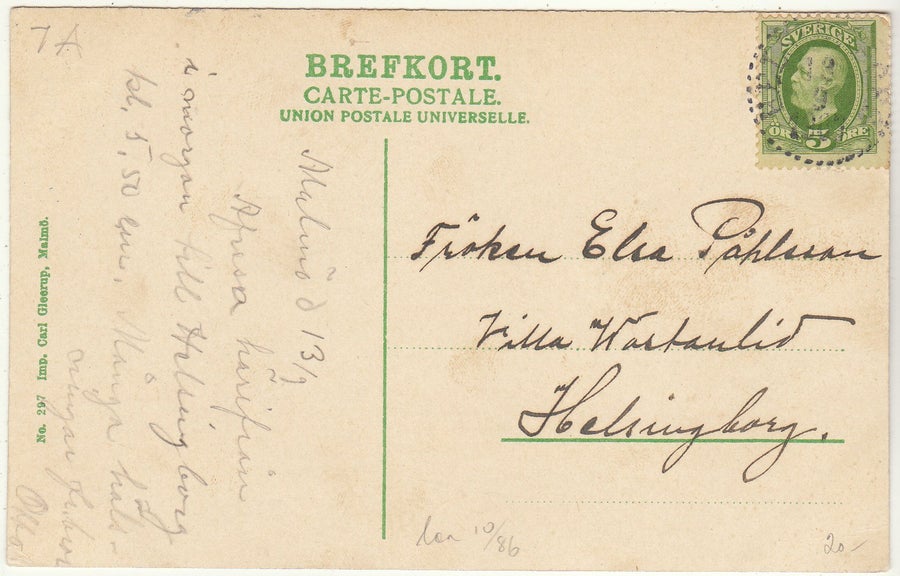 BREFKORT.
CARTE-POSTALE.
UNION POSTALE UNIVERSELLE.
SVERIGE
5
ÖRE ÖRE
Malmö d 13/9
Afresa härifrån
i morgon till Helsingborg
kl. 5,50 em. Många häls-
ningar från
Fröken Elsa Påhlsson
Villa Wårtanlid
Helsingborg.
No. 297 Imp. Carl Gleerup, Malmö.
10/86
20-